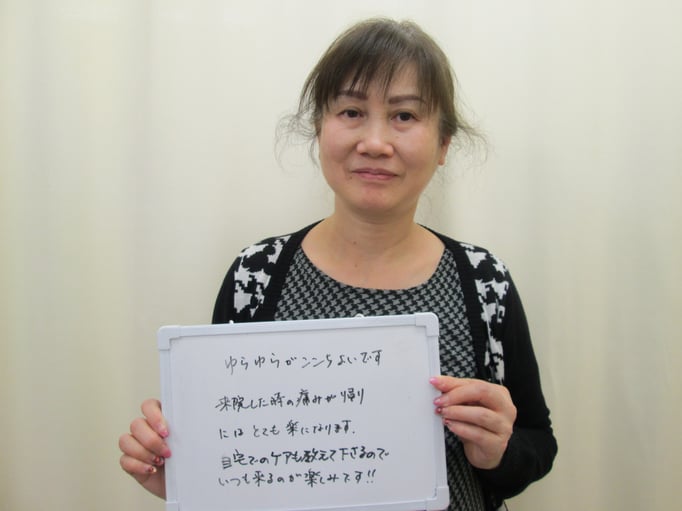 ゆらゆらがここちよいです
来院した時の痛みが帰り
にはとても楽になります.
自宅でのケアも教えて下さるので
いつも来るのが楽しみです!!